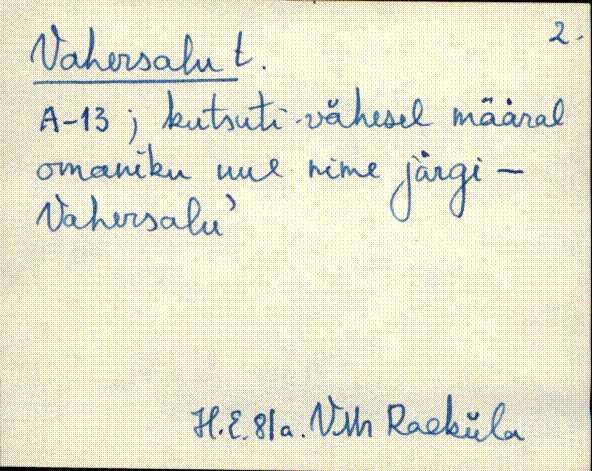 2.
Vahersalu t.
A-13; kutsuti vähesel määral
omaniku uue nime järgi –
Vahersalu’
H.E. 81a. VMr Raeküla